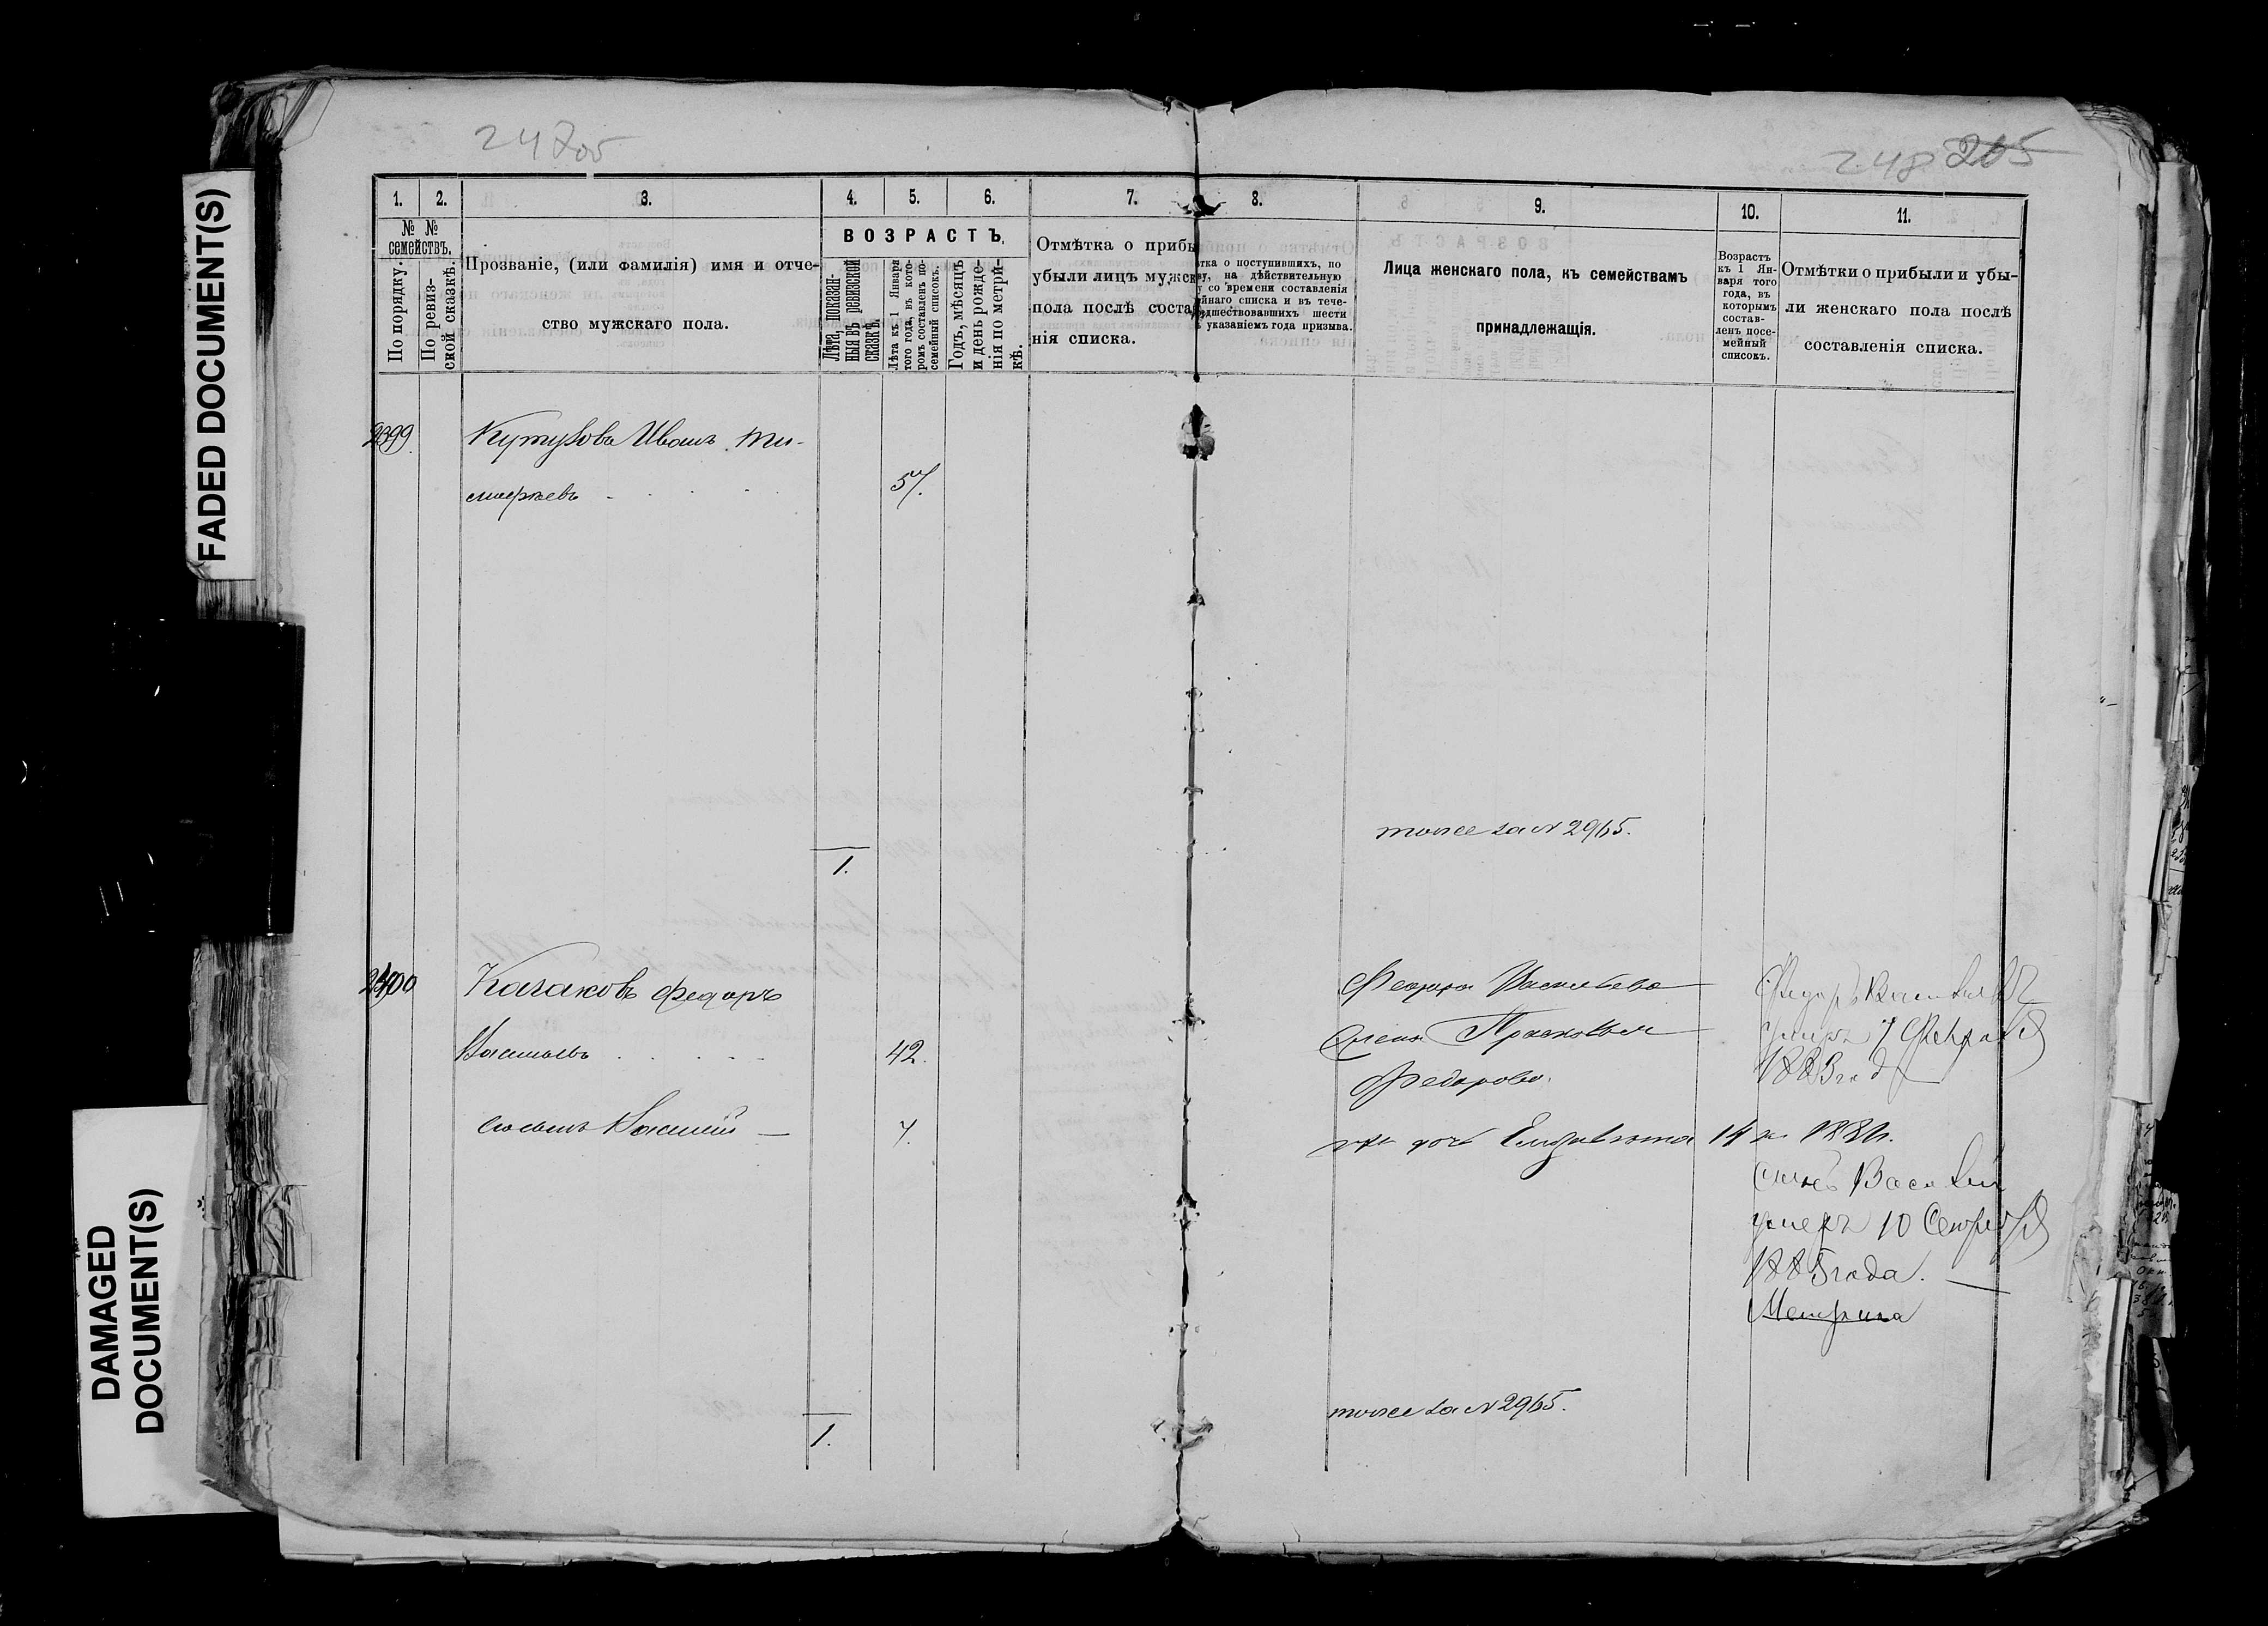 FADED DOCUMENT(S)
DAMAGED
DOCUMENT(S)
248
205
1. 2. 3. 4. 5. 6. 7. 8. 9. 10. 11.
№ №
семействъ.
По порядку.
По ревиз-
ской сказкѣ.
Прозваніе, (или фамилія) имя и отче-
ство мужскаго пола.
ВОЗРАСТЪ.
Лѣта, показан-
ныя въ ревизской
сказкѣ.
Лѣта къ 1 Января
того года, въ кото-
ромъ составленъ по-
семейный списокъ.
Годъ, мѣсяцъ
и день рожде-
нія по метри-
кѣ.
Отмѣтка о прибы
убыли лицъ мужск
пола послѣ соста
нія списка.
тка о поступившихъ, по
у, на дѣйствительную
у со времени составленія
йнаго списка и въ тече-
дшествовавшихъ шести
ъ указаніемъ года призыва.
Лица женскаго пола, къ семействамъ
принадлежащія.
Возрастъ
къ 1 Ян-
варя того
года, въ
которымъ
состав-
ленъ посе-
мейный
списокъ.
Отмѣтки о прибыли и убы-
ли женскаго пола послѣ
составленія списка.
2399 Кутузовъ Иванъ Ти-
мофѣевъ 57.
тоже за № 2965.
1.
2400 Казаковъ Федоръ
Васильевъ 42.
сынъ Василій 7.
Федора Васильева
жена Прасковья
Федорова.
дочь Елизавета 14
Федоръ Васильевъ
умеръ 7 Февраля
1883 год
сынъ Василій
умеръ 10 Сентября
1885 года.
Метрика
тоже за № 2965.
1.